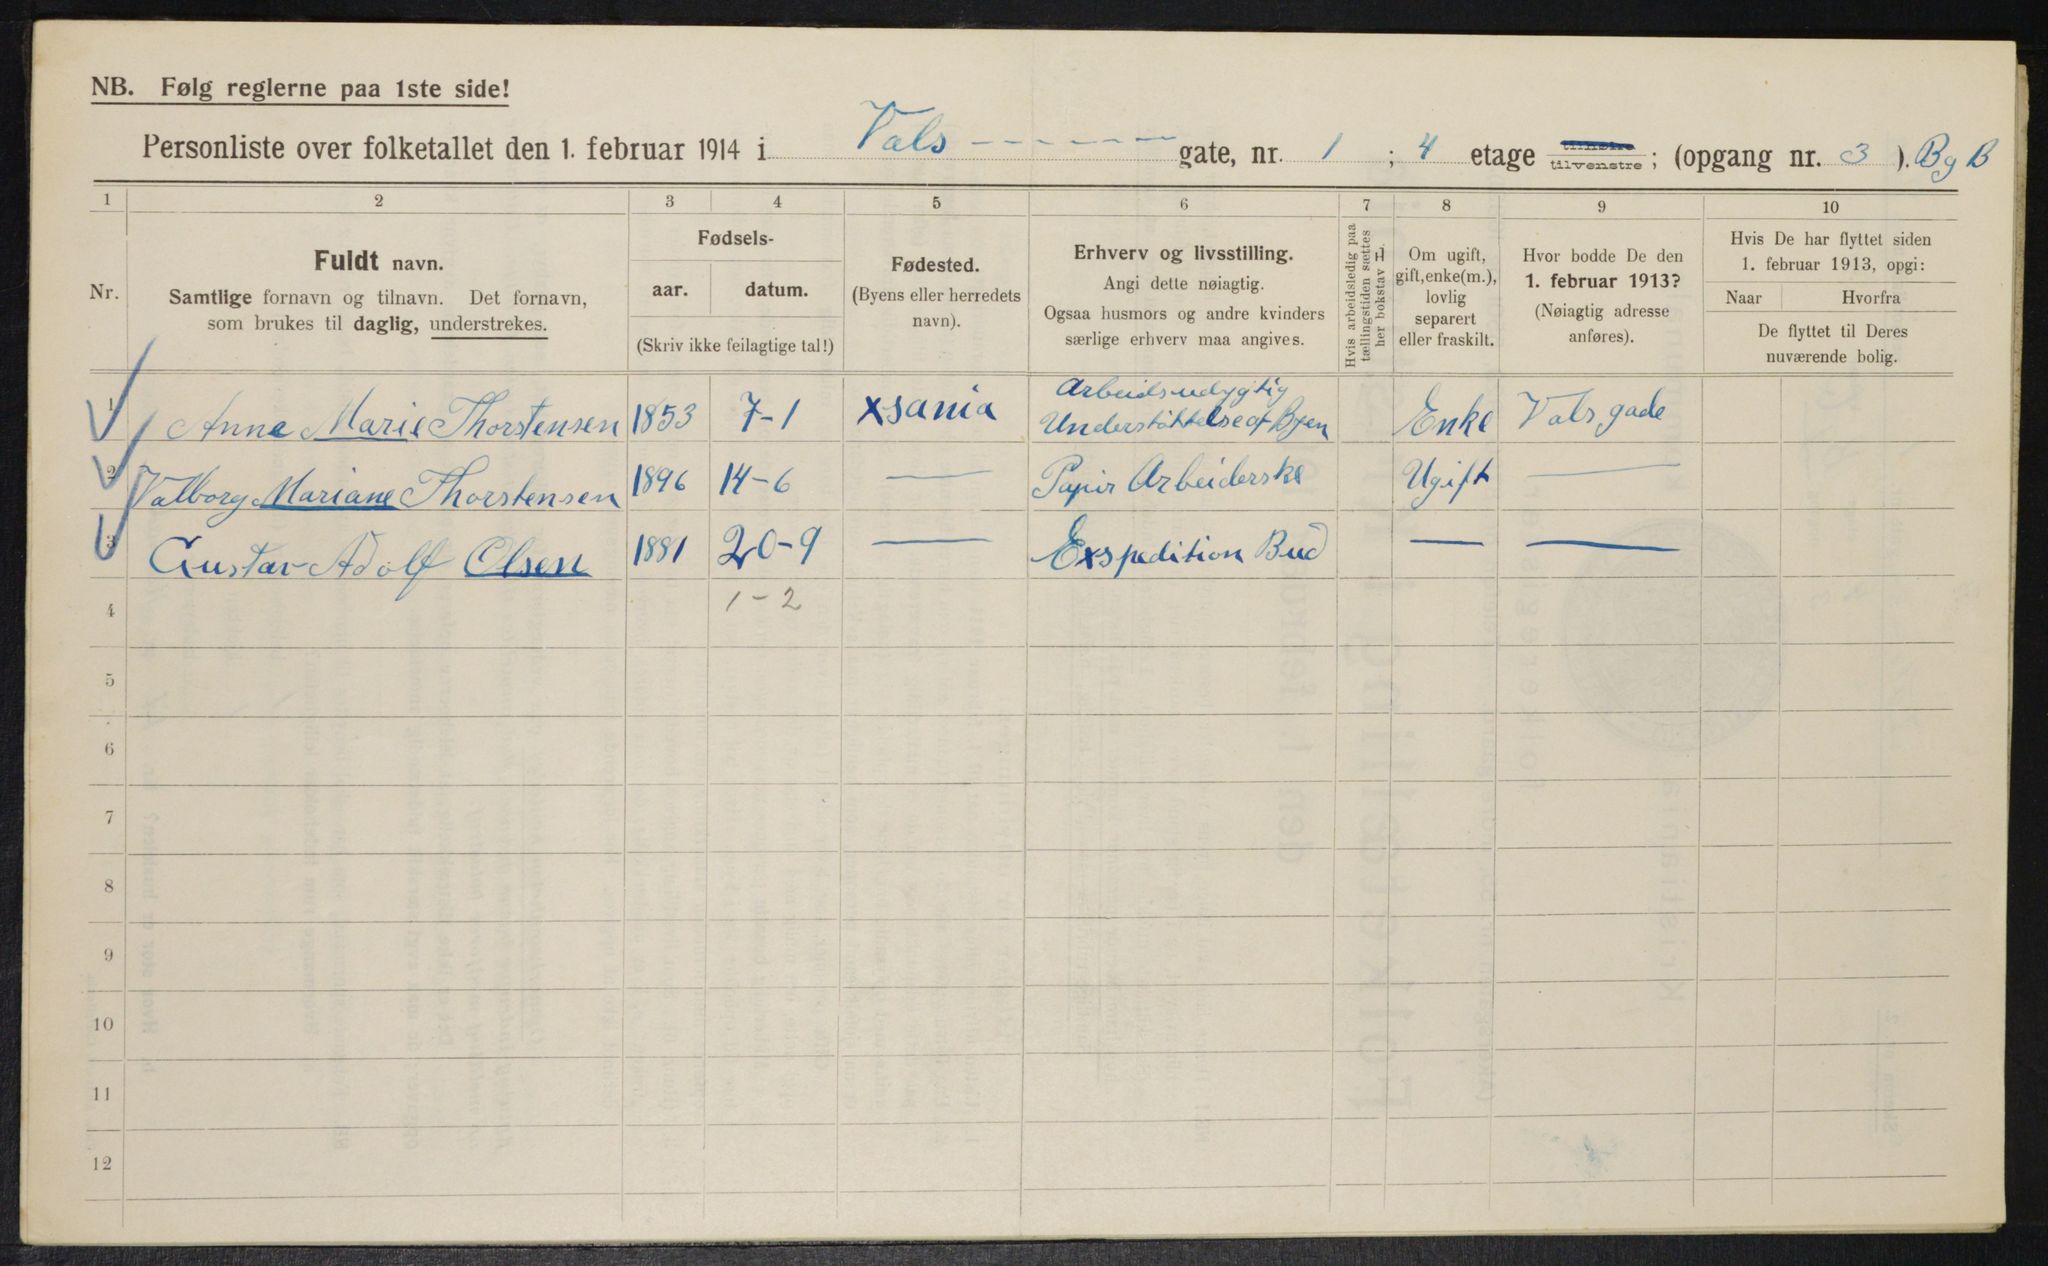 NB. Følg reglerne paa 1ste side!
Personliste over folketallet den 1. februar 1914 i Vals - - - - - - gate, nr. 1 ; 4 etage tilhøire tilvenstre ; (opgang nr. 3 ). Bg B
1 2 3 4 5 6 7 8 9 10
Nr.
Fuldt navn.
Samtlige fornavn og tilnavn. Det fornavn,
som brukes til daglig, understrekes.
Fødsels-
aar. datum.
(Skriv ikke feilagtige tal!)
Fødested.
(Byens eller herredets
navn).
Erhverv og livsstilling.
Angi dette nøiagtig.
Ogsaa husmors og andre kvinders
særlige erhverv maa angives.
Hvis arbeidsledig paa
tællingstiden sættes
her bokstav L.
Om ugift,
gift, enke(m.),
lovlig
separert
eller fraskilt.
Hvor bodde De den
1. februar 1913?
(Nøiagtig adresse
anføres).
Hvis De har flyttet siden
1. februar 1913, opgi:
Naar Hvorfra
De flyttet til Deres
nuværende bolig.
1 Anne Marie Thorstensen 1853 7-1 xsania Arbeidsudygtig
Understøttelse af Byen Enke Vals gade
2 Valborg Mariane Thorstensen 1896 14-6 — Papir Arbeiderske Ugift —
3 Gustav Adolf Olsen 1881 20-9 — Exspedition Bud — —
4 1-2
5
6
7
8
9
10
11
12